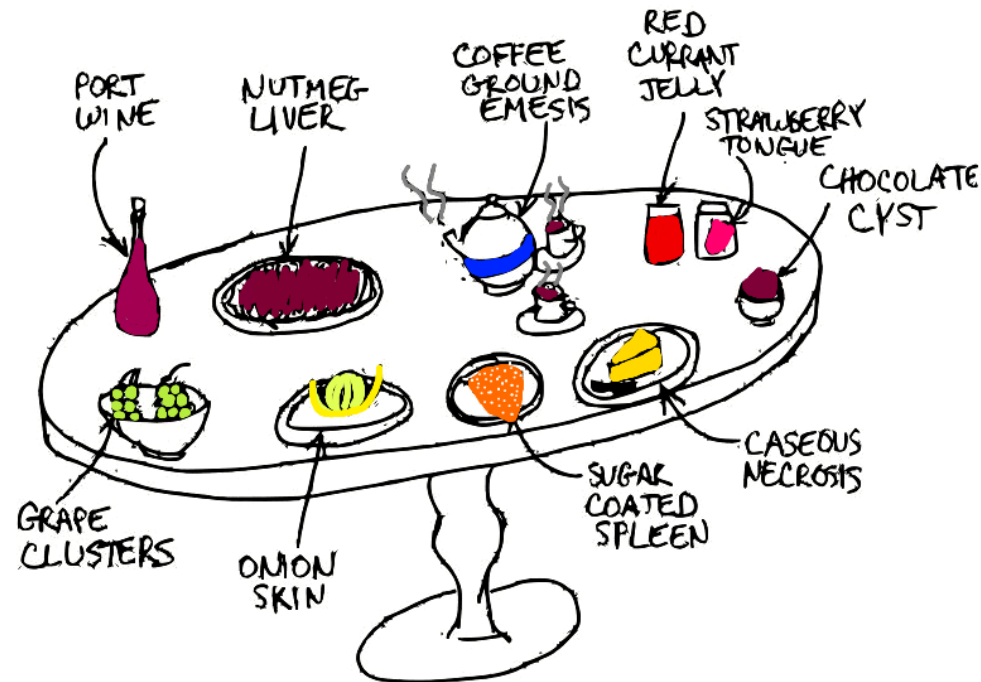 PORT
WINE
NUTMEG
LIVER
COFFEE
GROUND
EMESIS
RED
CURRANT
JELLY
STRAWBERRY
TONGUE
CHOCOLATE
CYST
GRAPE
CLUSTERS
ONION
SKIN
SUGAR
COATED
SPLEEN
CASEOUS
NECROSIS